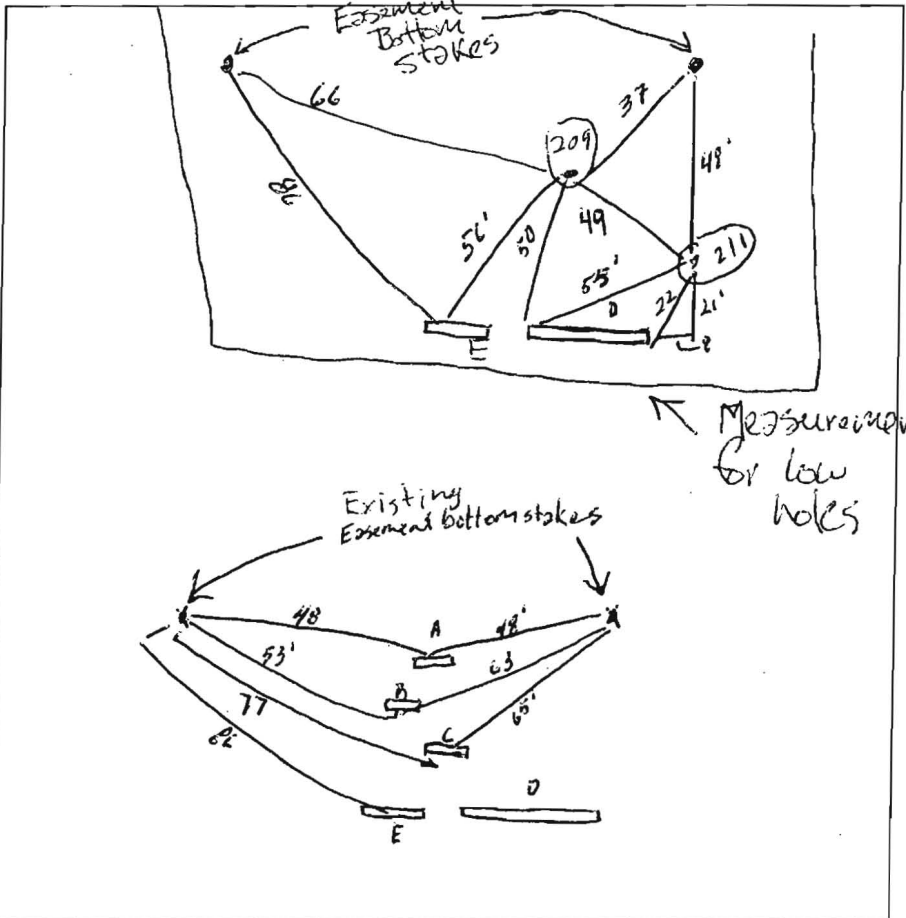 Easement
Bottom
Stakes
66
37
209
48'
86
56'
50
49
211
55'
D
22
21'
E
Measuremen
for low
holes
Existing
Easement bottom stakes
48
A
48'
53'
63
B
77
65'
C
D
E